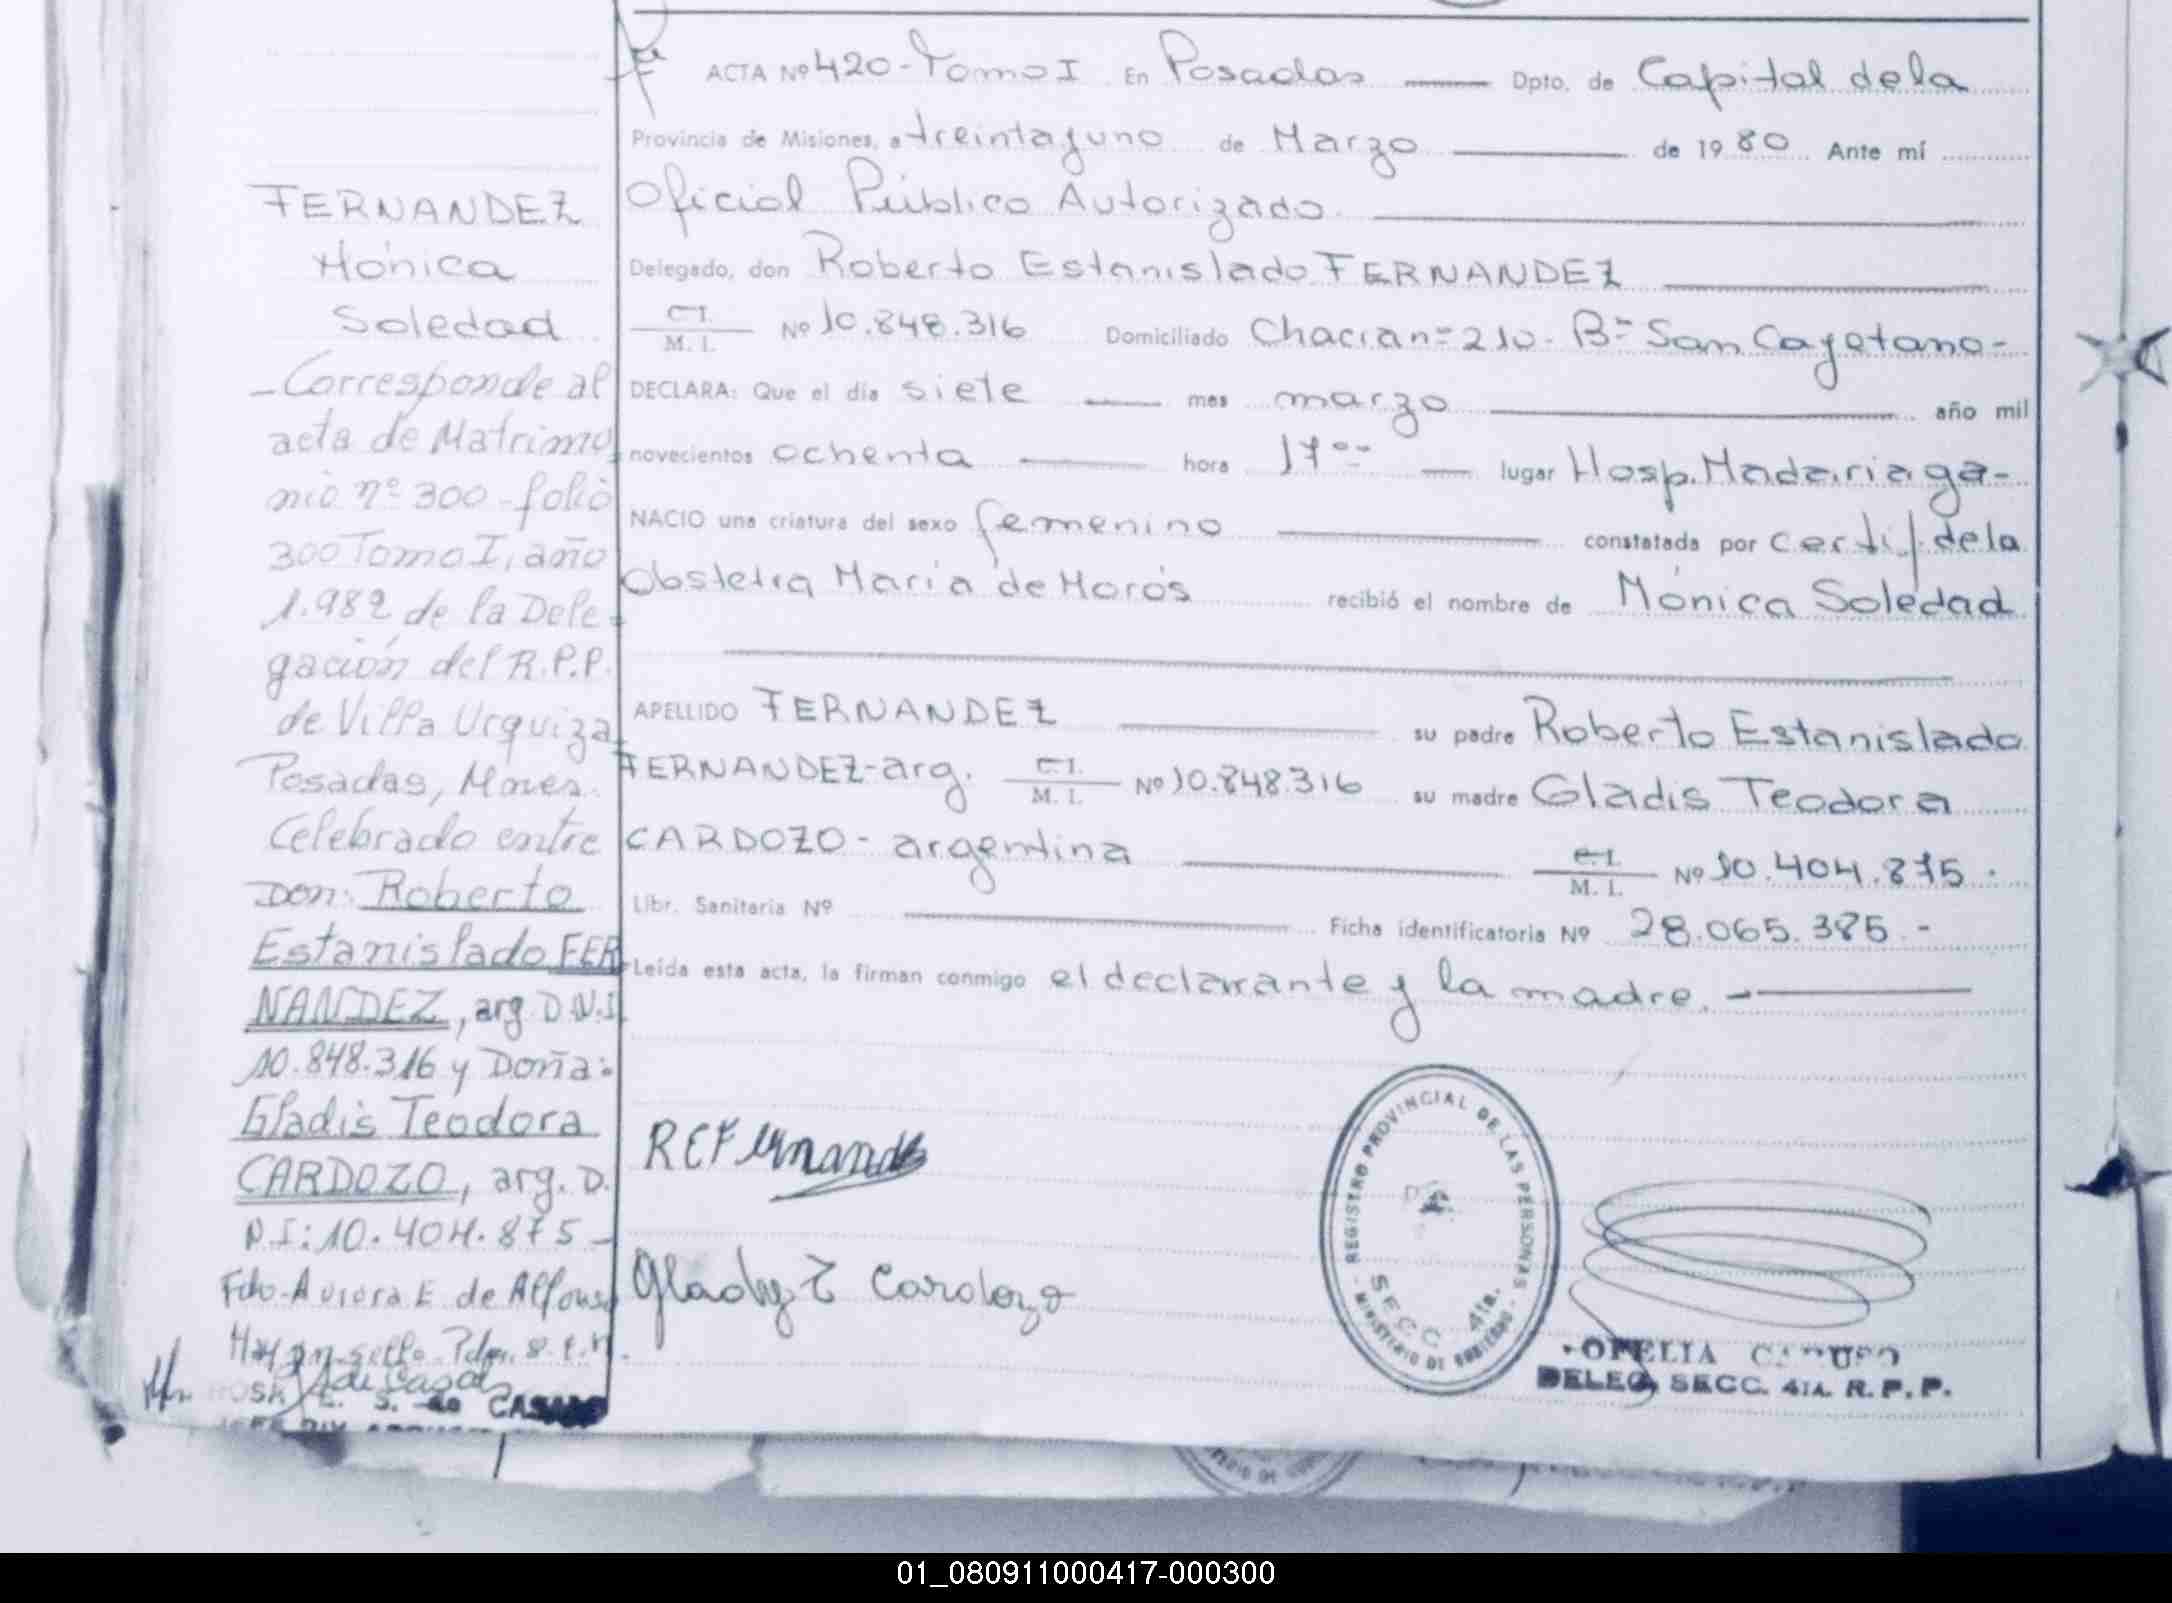 ACTA Nº 420 - Tomo I En Posadas Dpto. de Capital de la
Provincia de Misiones, a treinta y uno de Marzo de 1980 Ante mí
Oficial Público Autorizado.
Delegado, don Roberto Estanislado FERNANDEZ
C.I. M. I. Nº 10.848.316 Domiciliado 210 - Bº San Cayetano -
DECLARA: Que el día siete mes marzo año mil
novecientos ochenta hora 17 lugar Hosp. Madariaga -
NACIO una criatura del sexo femenino constatada por certif de la
Obstetra Maria de Morós recibió el nombre de Mónica Soledad
APELLIDO FERNANDEZ su padre Roberto Estanislado
FERNANDEZ - arg. C.I. M. I. Nº 10.848.316 su madre Gladis Teodora
CARDOZO - argentina C.I. M. I. Nº 10.404.875.
Libr. Sanitaria Nº Ficha identificatoria Nº 28.065.385.-
Leída esta acta, la firman conmigo el declarante y la madre. -
FERNANDEZ
Mónica
Soledad
- Corresponde al
acta de Matrimo
nio nº 300 - folio
300 Tomo I, año
1.982 de la Dele-
gación del R.P.P.
de Villa Urquiza
Posadas, Mnes.
Celebrado entre
Don: Roberto
Estanislado FER
NANDEZ, arg. D.N.I
10.848.316 y Doña:
Gladis Teodora
CARDOZO, arg. D.
N.I: 10.404.875 -
Fdo. Aurora E de Alfonso
Hay un sello
S. de CASALS
R E Fernandez
Gladys T Cardozo
REGISTRO PROVINCIAL DE LAS PERSONAS
SECC. 4ta.
MINISTERIO DE GOBIERNO
OFELIA CARUSO
DELEG. SECC. 4TA. R. P. P.
01_080911000417-000300